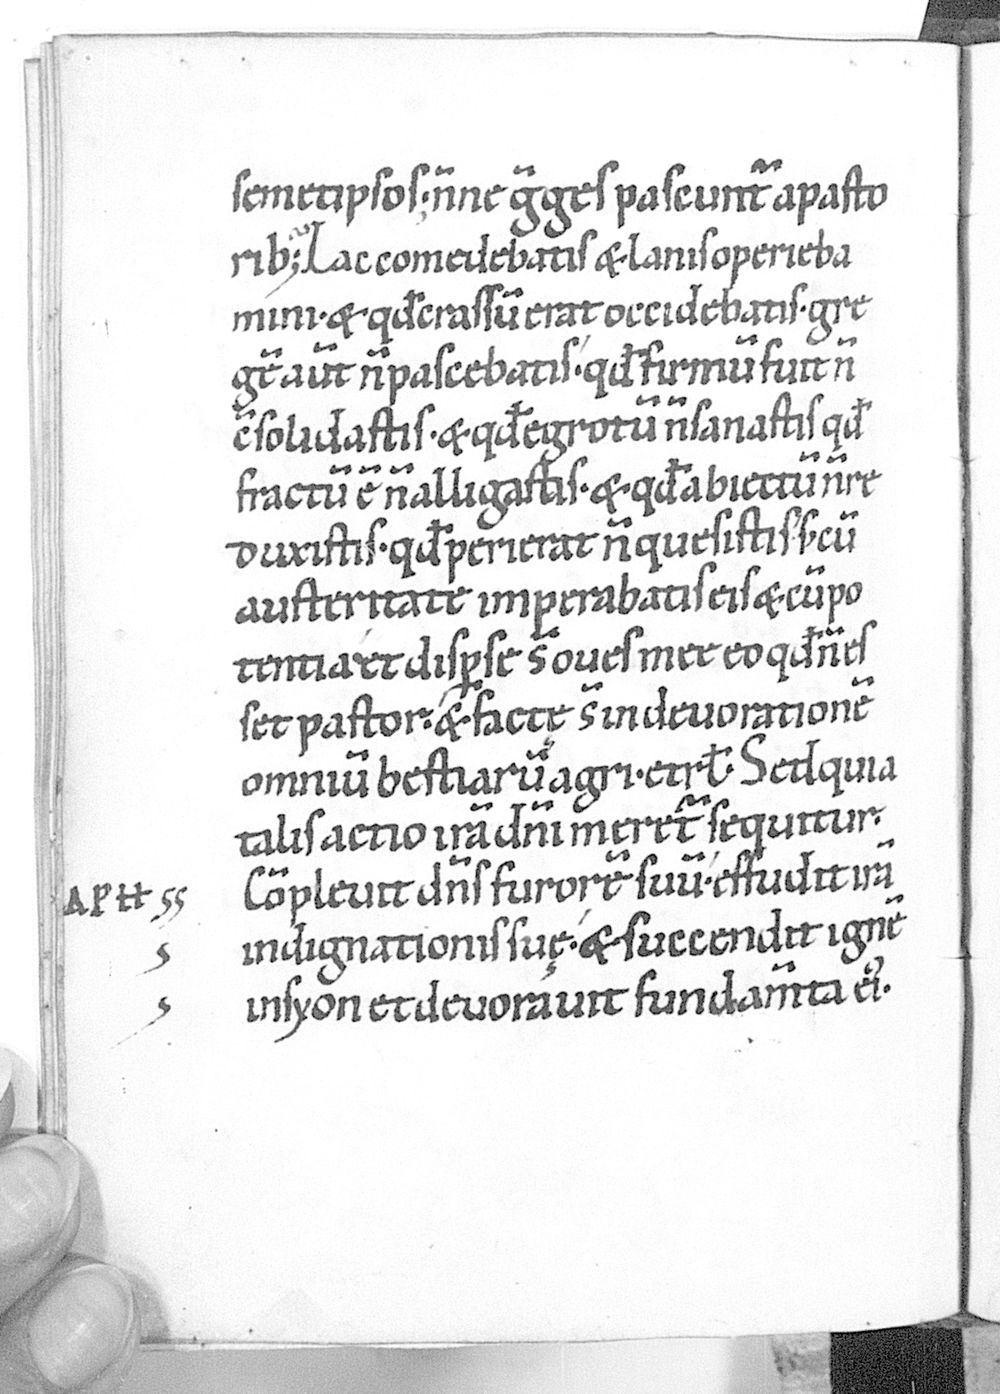 semetipsos· n̄ne g̃ges pascunt̃ a pasto
rib; Lac comedebatis & lanis operieba
mini· & qd̄ crassū erat occidebatis· gre
gē aūt n̄ pascebatis· qd̄ firmū fuit n̄
c̄solidastis· & qd̄ egrotū n̄ sanastis qd̄
fractū ē n̄ alligastis· & qd̄ abiectū n̄ re
duxistis· qd̄ perierat n̄ quesistis· s; cū
austeritate imperabatis eis & cū po
tentia· et disp̱se s̄ oues mee eo qd̄ n̄ es
set pastor· & factę s̄ in deuorationē
omniū bestiarū agri· et rł· Sed quia
talis actio irā dn̄i meret̃ sequitur·
Cōpleuit dn̄s furorē suū· effudit irā
indignationis suę· & succendit ignē
in syon et deuorauit fundam̄ta ei᾽·